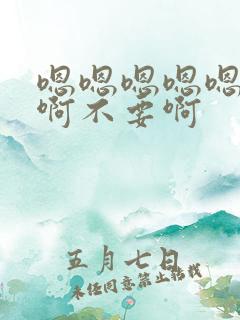 嗯嗯嗯嗯嗯
啊不要啊
五月七日
未经同意禁止转载